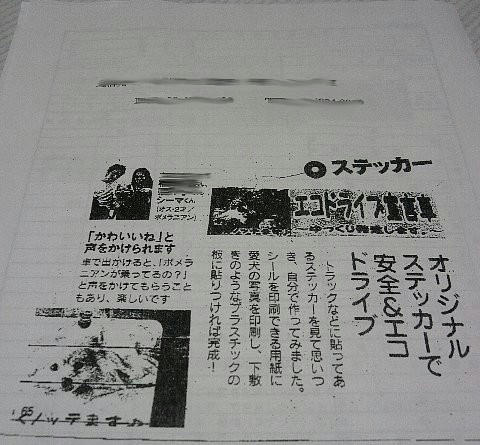 ステッカー
エコドライブ宣言車
オリジナル
ステッカーで
安全&エコ
ドライブ
トラックなどに貼ってあ
るステッカーを見て思いつ
き、自分で作ってみました。
シールを印刷できる用紙に
愛犬の写真を印刷し、下敷
きのようなプラスチックの
板に貼りつければ完成!
シーマくん
(オス・2才/
ポメラニアン)
「かわいいね」と
声をかけられます
車で出かけると、「ポメラ
ニアンが乗ってるの?」
と声をかけてもらうこと
もあり、楽しいです